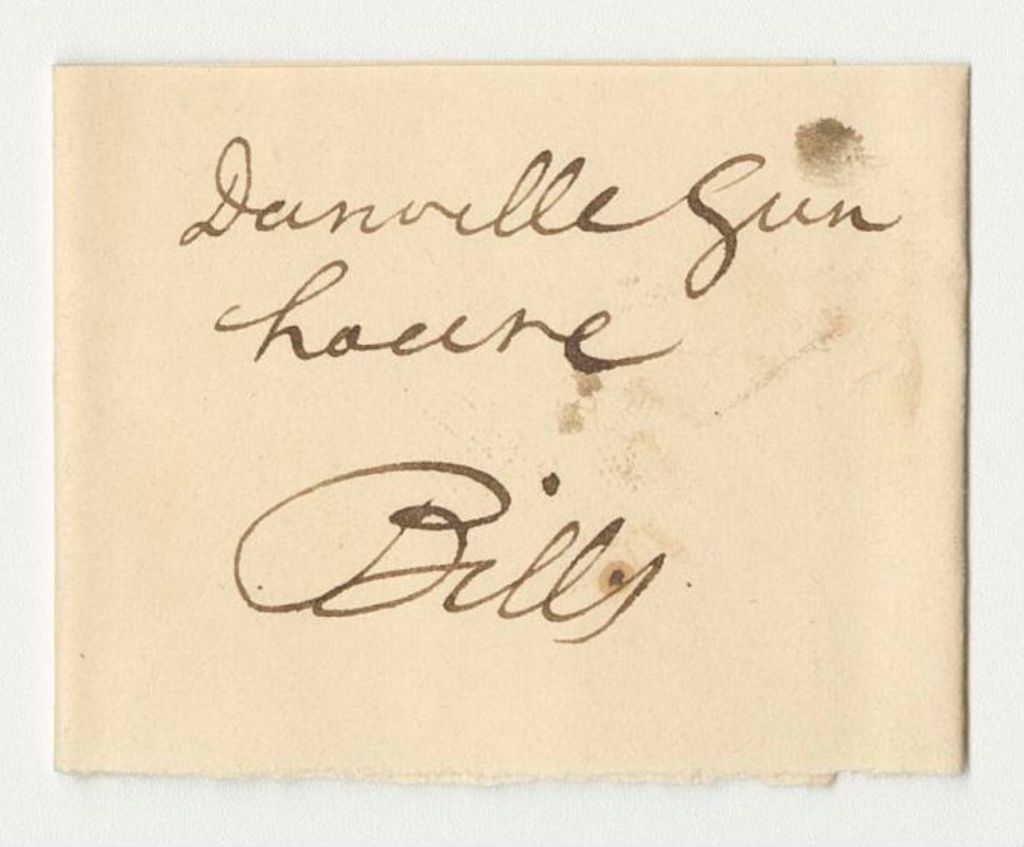 Danville Gun
house
Bills